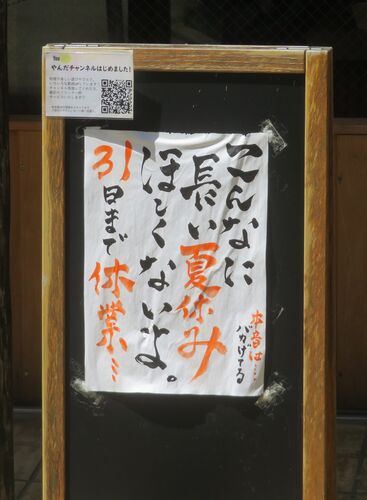 やんだチャンネルはじめました!
こんなに
長い夏休み
ほしくないよ。
31日まで休業…
本音は…
バカげてる